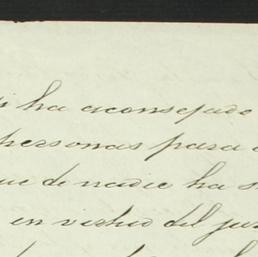 si ha aconsejado
personas para
que de nadie ha
en virtud del